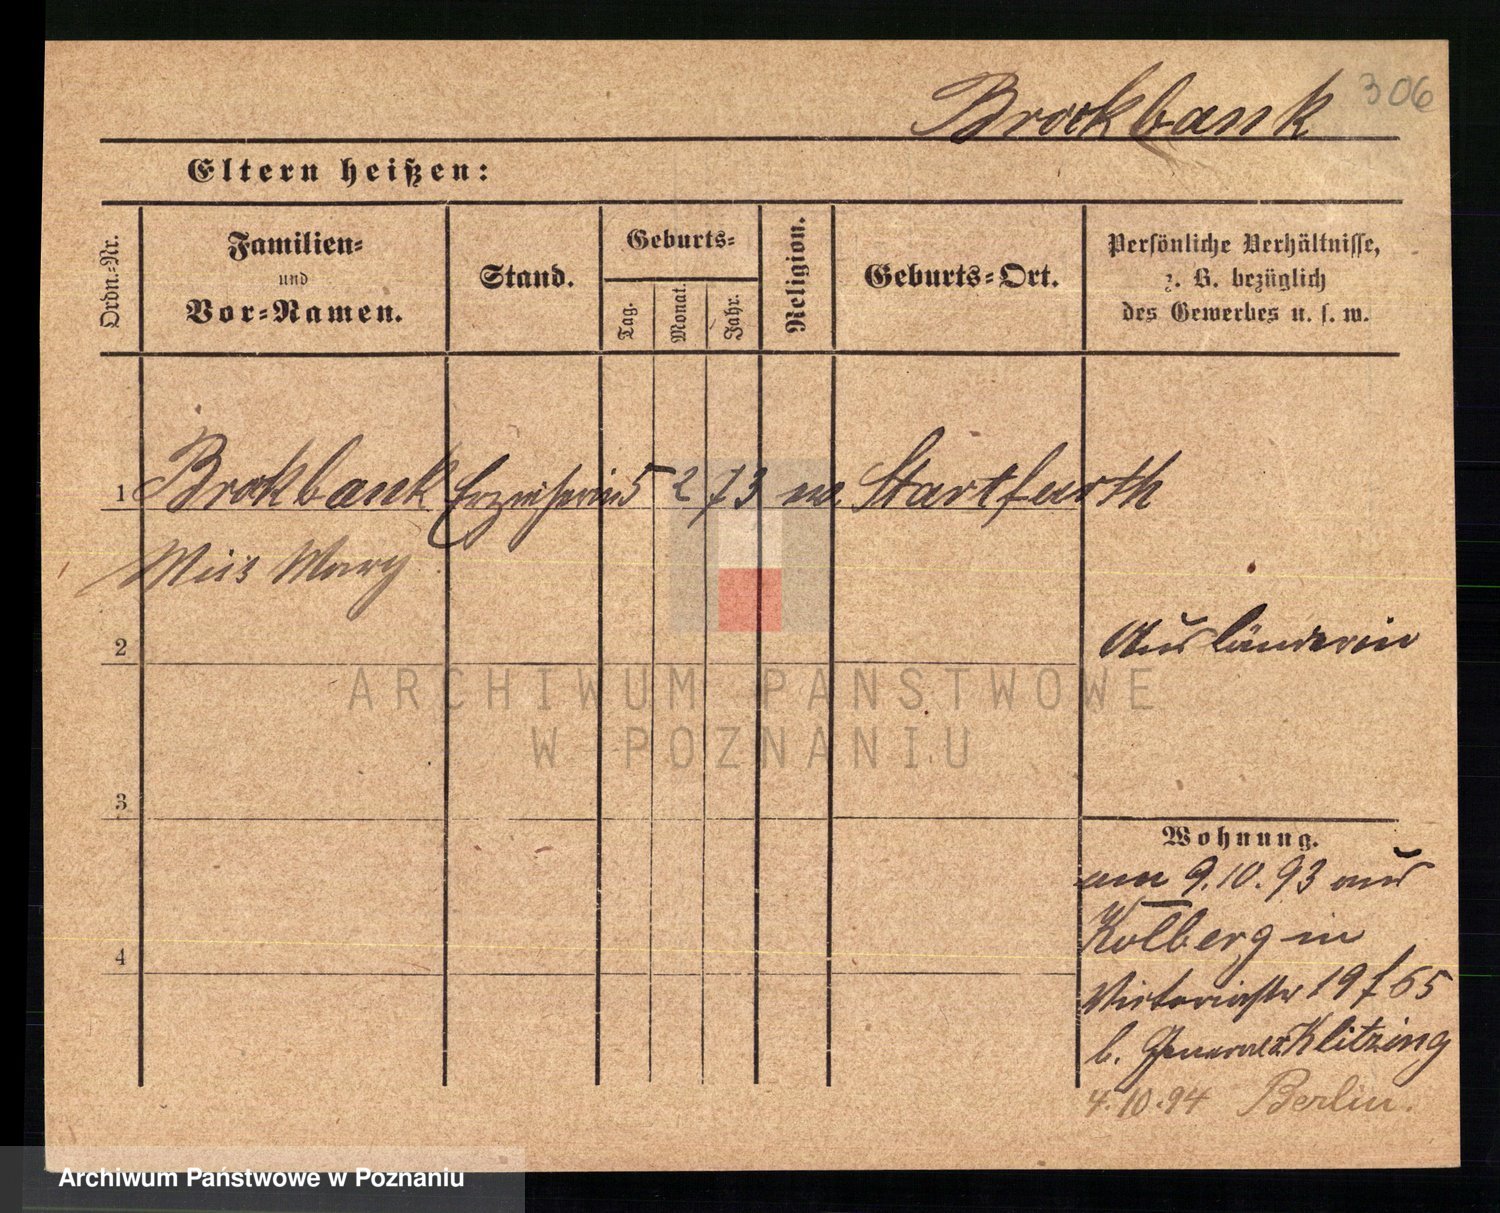 306
Brockbank
Eltern heißen:
Ordn.-Nr.
Familien-
und
Vor-Namen.
Stand.
Geburts-
Tag.
Monat.
Jahr.
Religion.
Geburts-Ort.
Persönliche Verhältnisse,
z. B. bezüglich
des Gewerbes u. s. w.
1 Brockbank Erzieherin 5 2 73 Startforth
Miss Mary
2
Ausländerin
ARCHIWUM PAŃSTWOWE
W POZNANIU
3
Wohnung.
am 9.10.93 aus
Kolberg in
4
Victoriastr 19 f 65
b. General v. Klitzing
4.10.94 Berlin.
Archiwum Państwowe w Poznaniu